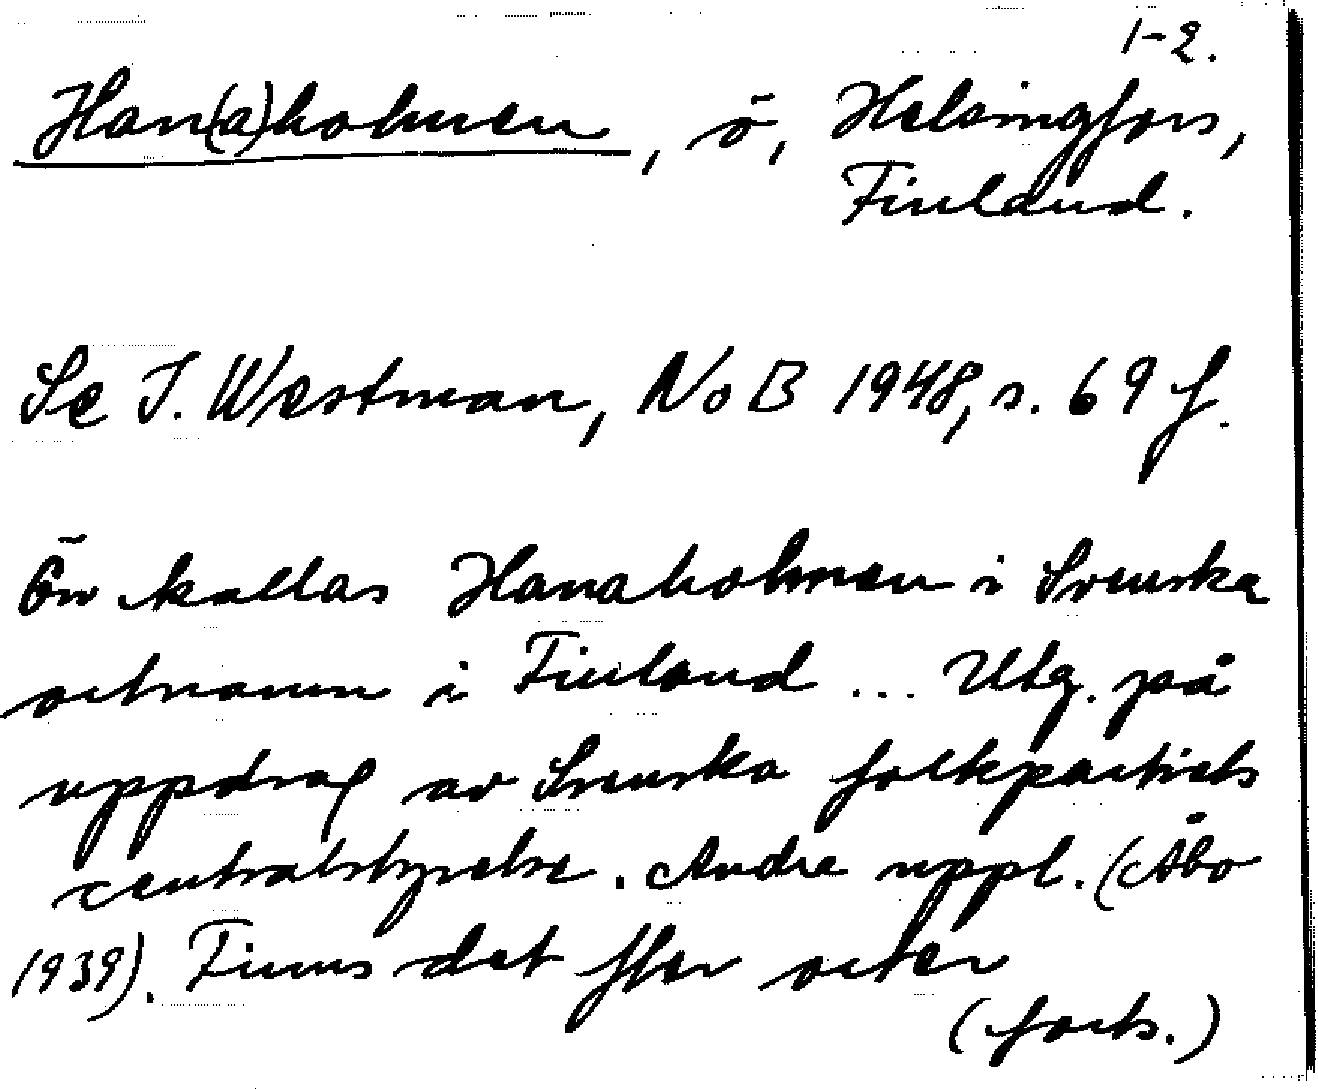 1-2.
Han(a)holmen, ö, Helsingfors,
Finland.
Se I. Westman, NoB 1948, s. 69 f.
Ön kallas Hanaholmen i Svenska
ortnamn i Finland ... Utg. på
uppdrag av Svenska folkpartiets
centralstyrelse. Andra uppl. (Åbo
1939). Finns det fler orter
(forts.)